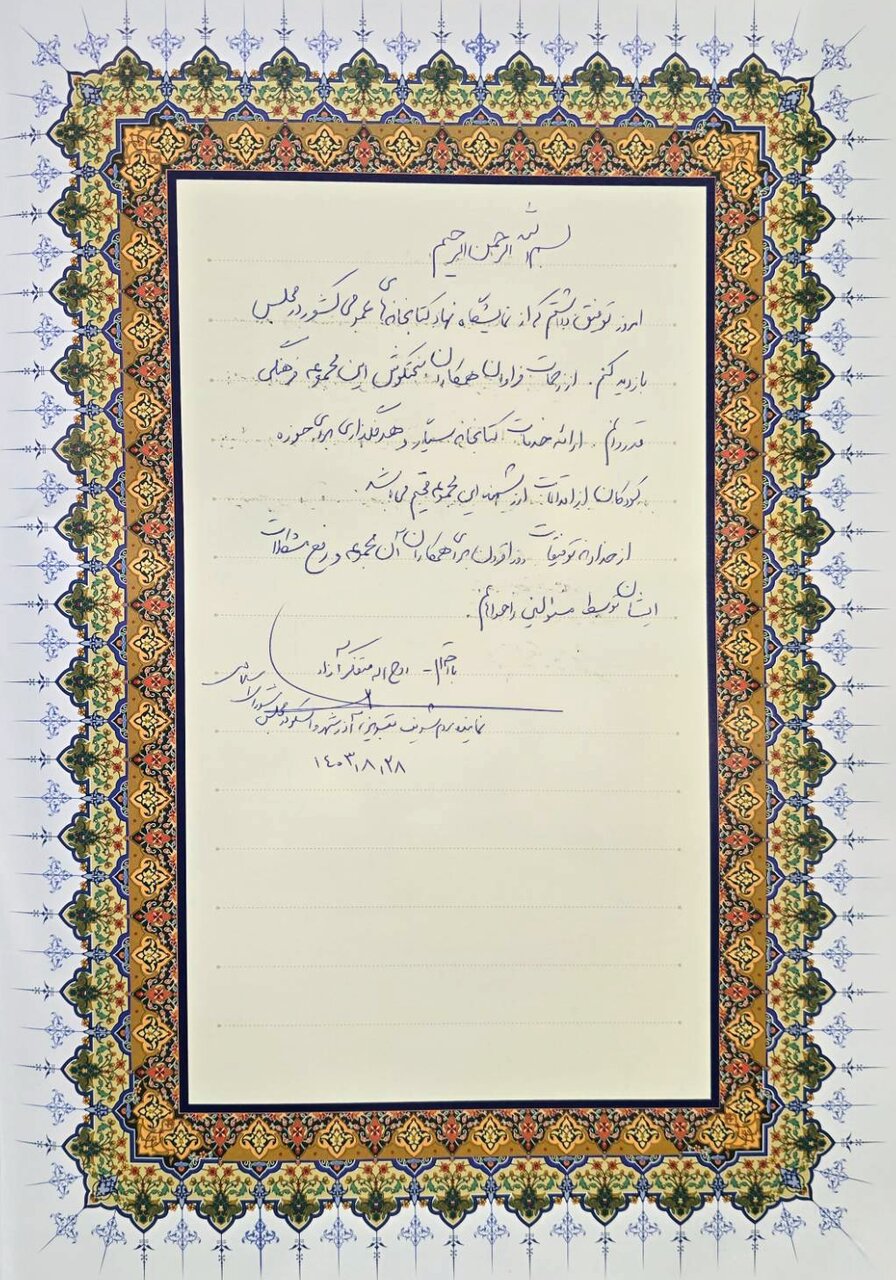 بسم الله الرحمن الرحیم
امروز توفیق داشتم که از نمایشگاه نهاد کتابخانه های عمومی کشور در مجلس
بازدید کنم. از زحمات فراوان همکاران سختکوش این مجموعه فرهنگی
قدردانم. ارائه خدمات کتابخانه سیار و هدفگذاری برای حوزه
کودکان از اقدامات ارزشمند این مجموعه قیم می باشد.
از خداوند توفیقات روزافزون برای همکاران آن مجموعه و رفع مشکلات
ایشان توسط مسئولین را خواهانم.
با احترام - روح اله متفکر آزاد
نماینده مردم شریف تبریز، آذرشهر و اسکو در مجلس شورای اسلامی
۱۴۰۳،۸،۲۸